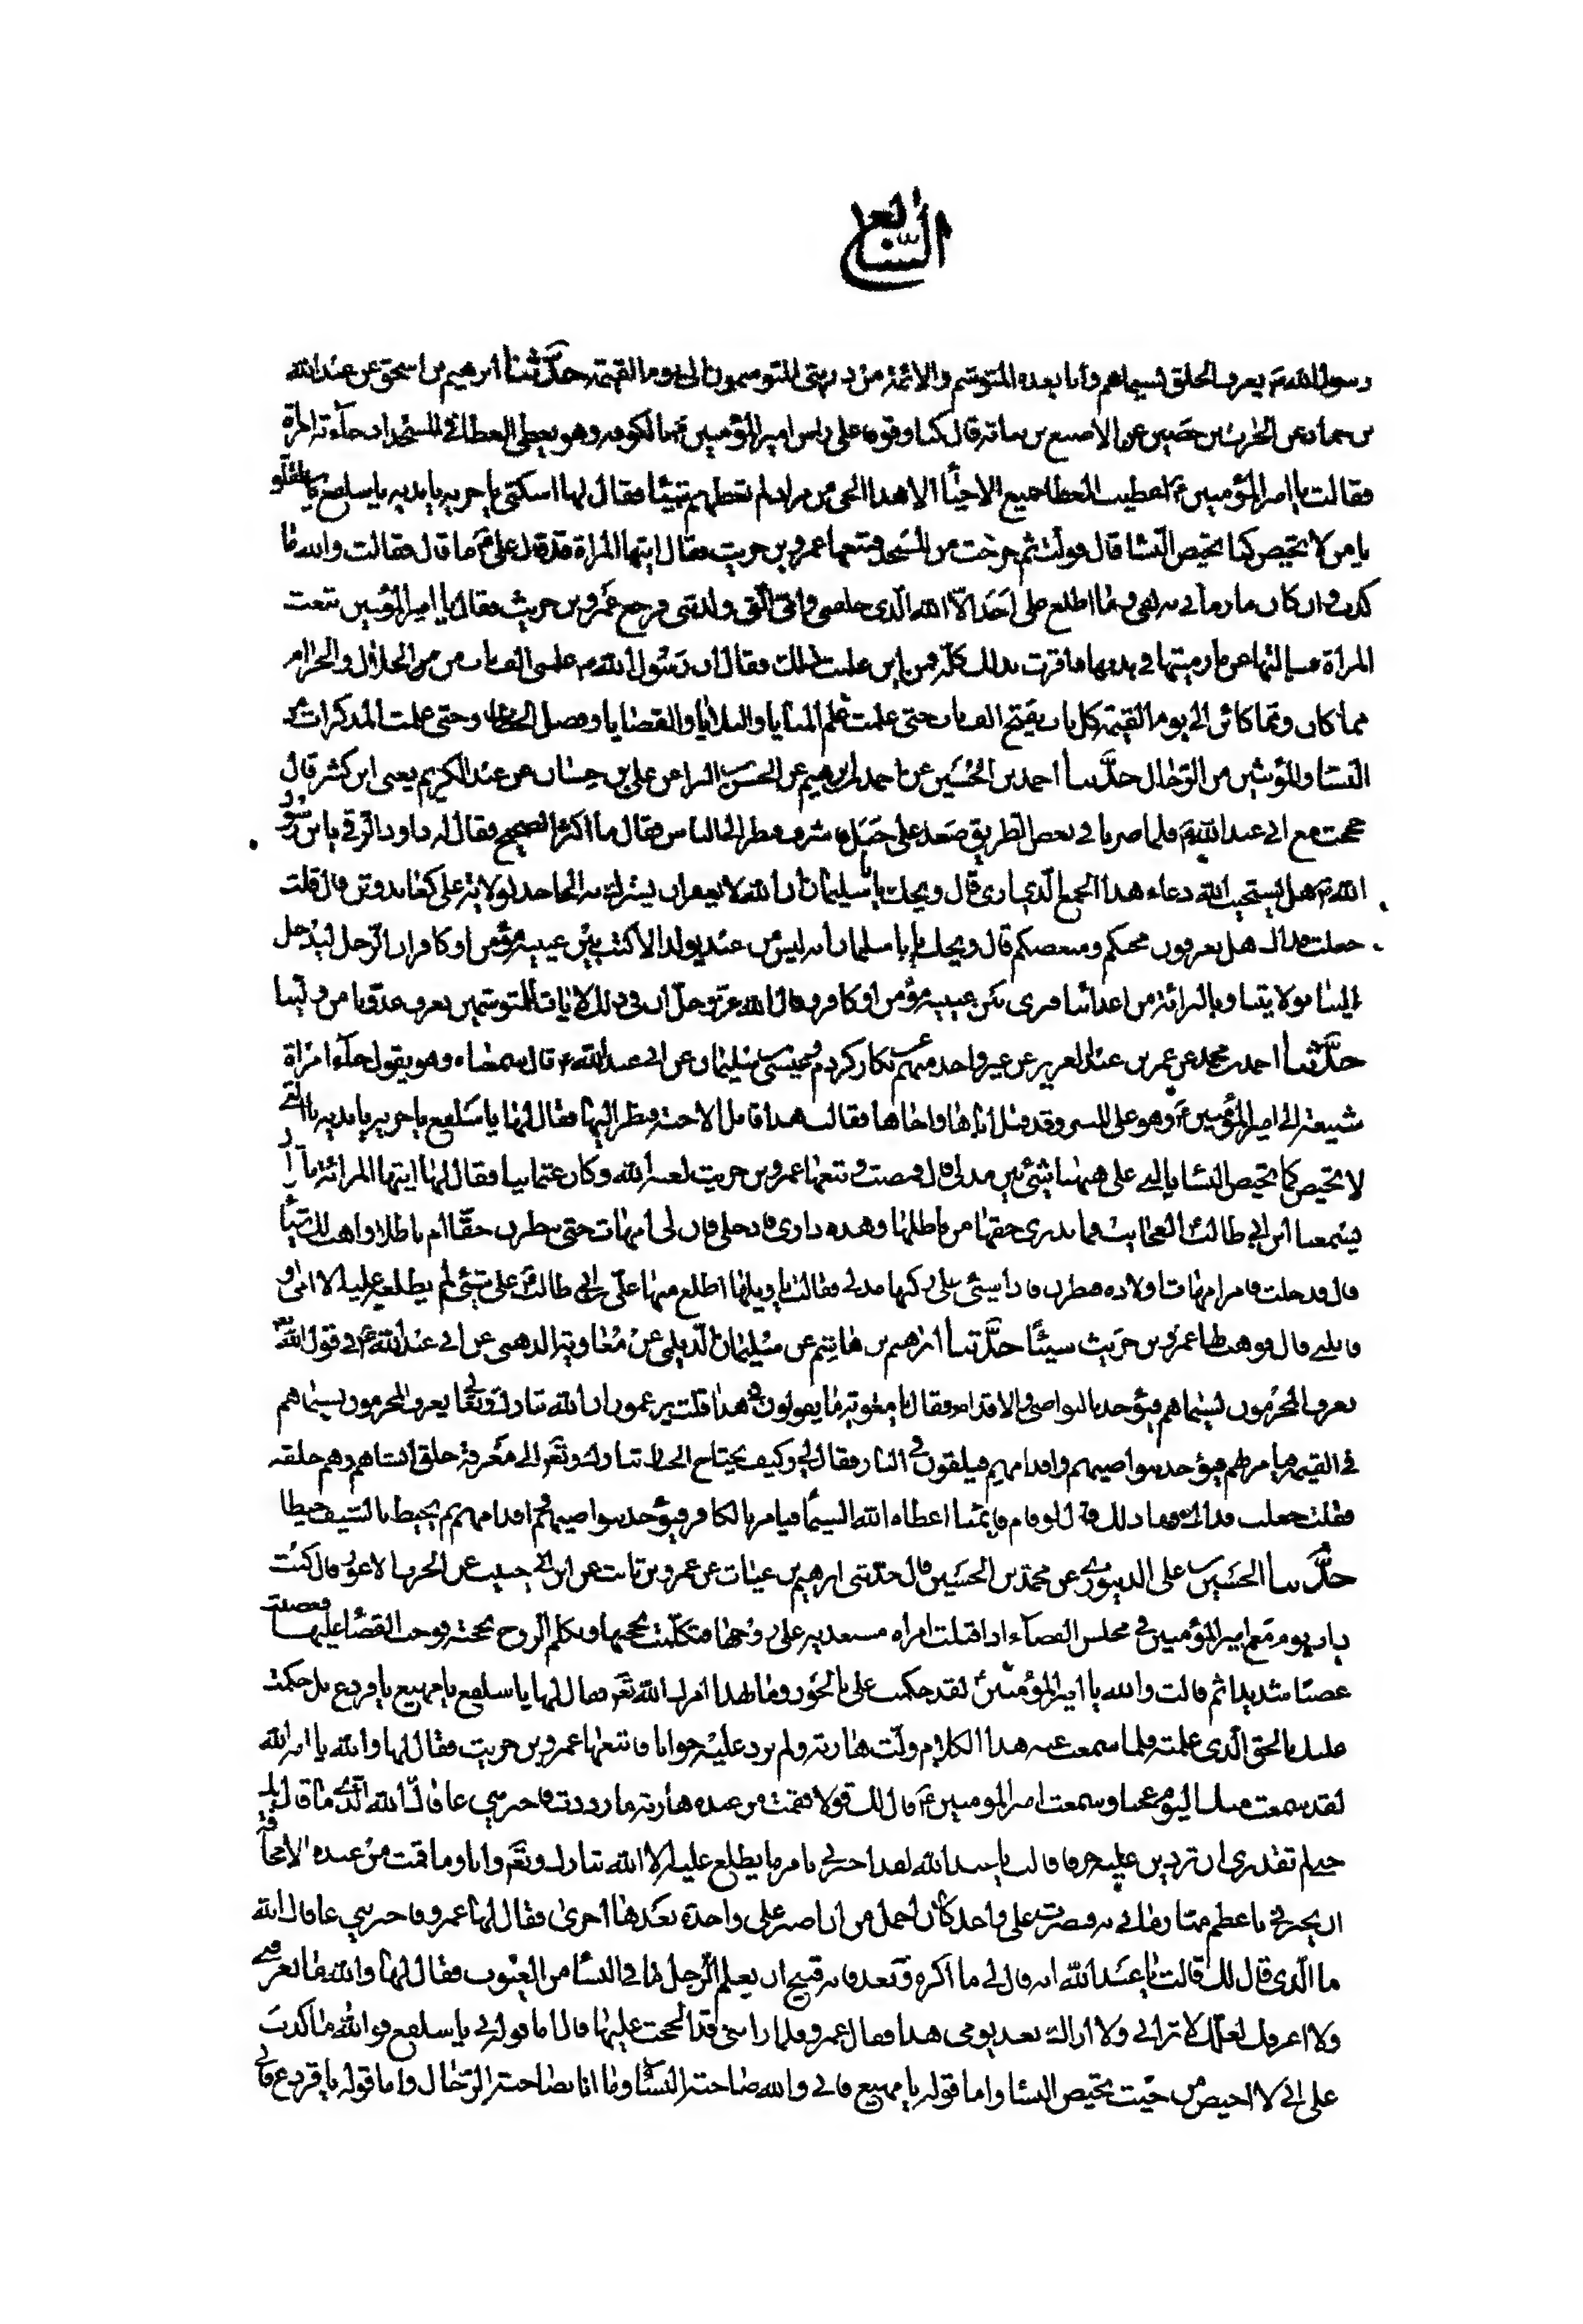 السابع
رسول الله ص يعرف الخلق بسيماهم وانا بعده المتوسم والائمة من ذريتى المتوسمون الى يوم القيمة حدثنا ابرهيم بن اسحق عن عبد الله
بن حماد عن الحرث بن حصين عن الاصبغ بن نباتة قال كنا وقوفا على راس امير المؤمنين ع بالكوفة وهو يعطى العطا فى المسجد اذ جاءته امراة
فقالت يا امير المؤمنين ع اعطيت العطا جميع الاحياء الا هذا الحى من مراد لم تعطهم شيئا فقال لها اسكتى يا جريه يا بذيه يا سلفع يا سلقلق
يا من لا تحيض كما تحيض النسا قال فولت ثم خرجت من المسجد فتبعها عمرو بن حريث فقال ايتها المراة قد قال على ع ما قال فقالت والله ما
كذب وان كان ما رمانى به لفى وما اطلع على احد الا الله الذى خلقنى وامى التى ولدتنى فرجع عمرو بن حريث فقال يا امير المؤمنين تتبعت
المراة فسالتها عن ما رميتها فى بدنها فاقرت بذلك كله فمن اين علمت ذلك فقال ان رسول الله ص علمنى الف باب من الحلال والحرام
مما كان ومما كائن الى يوم القيمة كل باب يفتح الف باب حتى علمت علم المنايا والبلايا والقضايا وفصل الخطاب وحتى علمت المذكرات من
النسا والمؤنثين من الرجال حدثنا احمد بن الحسين عن احمد بن ابرهيم عن الحسن بن البرا عن على بن حسان عن عبد الكريم يعنى ابن كثير قال
حججت مع ابى عبد الله ع فلما صرنا فى بعض الطريق صعد على جبل فاشرف فنظر الى الناس فقال ما اكثر الضجيج فقال له داود الرقى يا بن رسول
الله ص هل يستجيب الله دعاء هذا الجمع الذى ارى قال ويحك يا با سليمان ان الله لا يغفر ان يشرك به الجاحد لولاية على كعابد وثن قال قلت
جعلت فداك هل تعرفون محبكم ومبغضكم قال ويحك يا با سليمان انه ليس من عبد يولد الا كتب بين عينيه مؤمن او كافر ان الرجل ليدخل
الينا بولايتنا وبالبرائة من اعدائنا فنرى بين عينيه مؤمن او كافر وقال الله عز وجل ان فى ذلك لايات للمتوسمين نعرف عدونا من ولينا
حدثنا احمد بن محمد عن عمر بن عبد العزيز عن غير واحد منهم بكار كردم وعيسى بن سليمان عن ابى عبد الله ع قال سمعناه وهو يقول جآءت امراة
شنيعة الى امير المؤمنين ع وهو على المنبر وقد قتل اباها واخاها فقالت هذا قاتل الاحبة فنظر اليها فقال لها يا سلفع يا جريه يا بذيه يا التى
لا تحيض كما تحيض النسا يا التى على هنها شئ بين مدلى قال فمضت وتبعها عمرو بن حريث لعنه الله وكان عثمانيا فقال لها ايتها المرائة ما يزال
يسمعنا ابن ابى طالب العجايب فما ندرى حقها من باطلها وهذه دارى فادخلى فان لى امهات حتى ينظرن حقا ام باطلا واهب لك شيئا
قال فدخلت فامر امهات اولاده فنظرن فاذا شئ على ركبها مدلى فقالت يا ويلها اطلع منها على بن ابى طالب على شئ لم يطلع عليه الا امى او
قابلتى قال فوهب لها عمرو بن حريث شيئا حدثنا ابرهيم بن هاشم عن سليمان الديلمى عن معاوية الدهنى عن ابى عبد الله ع فى قول الله تع
يعرف المجرمون بسيماهم فيؤخذ بالنواصى والاقدام فقال يا معوية ما يقولون فى هذا قلت يزعمون ان الله تبارك وتعا يعرف المجرمون بسيماهم
فى القيمة فيامر بهم فيؤخذ بنواصيهم واقدامهم فيلقون فى النار فقال لى وكيف يحتاج الجبار تبارك وتع الى معرفة خلق انشاهم وهم خلقه
فقلت جعلت فداك وما ذلك قال لو قام قائمنا اعطاه الله السيما فيامر بالكافر فيؤخذ بنواصيهم واقدامهم ثم يخبط بالسيف خبطا
حدثنا الحسين بن على الدينورى عن محمد بن الحسين قال حدثنى ابرهيم بن غياث عن عمرو بن ثابت عن ابن ابى حبيب عن الحرث الاعور قال كنت
ذات يوم مع امير المؤمنين فى مجلس القضاء اذ اقبلت امراة مستعدية على زوجها فتكلمت بحجتها وتكلم الزوج بحجته فوجب القضا عليها فغضبت
غضبا شديدا ثم قالت والله يا امير المؤمنين لقد حكمت على بالجور وما بهذا امرك الله تع فقال لها يا سلفع يا مهيع يا قردع بل حكمت
عليك بالحق الذى علمته فلما سمعت منه هذا الكلام ولت هاربة ولم ترد عليه جوابا فاتبعها عمرو بن حريث فقال لها والله يا امة الله
لقد سمعت منك اليوم عجبا وسمعت امير المومنين ع قال لك قولا فقمت من عنده هاربة ما رددت فاخبرينى عافاك الله الذى ما قال لك
حتى لم تقدرى ان تردين عليه حرفا قالت يا عبد الله لقد اخبرنى بامر ما يطلع عليه الا الله تبارك وتع وانا وما قمت من عنده الا مخافة
ان يخبرنى باعظم مما رمانى به فصبرت على واحد كان اجمل من ان اصبر على واحدة بعدها اخرى فقال لها عمرو فاخبرينى عافاك الله
ما الذى قال لك قالت يا عبد الله انه قال لى ما اكره وبعد فانه قبيح ان يعلم الرجل ما فى النسا من العيوب فقال لها والله ما تعرفينى
ولا اعرفك لعلك لا ترانى ولا اراك بعد يومى هذا فقال عمرو فلما راتنى قد الححت عليها قالت اما قوله لى يا سلفع فوالله ما كذب
على انى لا احيض من حيث تحيض النسا واما قوله يا مهيع فانى والله صاحبة النسا وما انا بصاحبة الرجال واما قوله يا قردع فانى